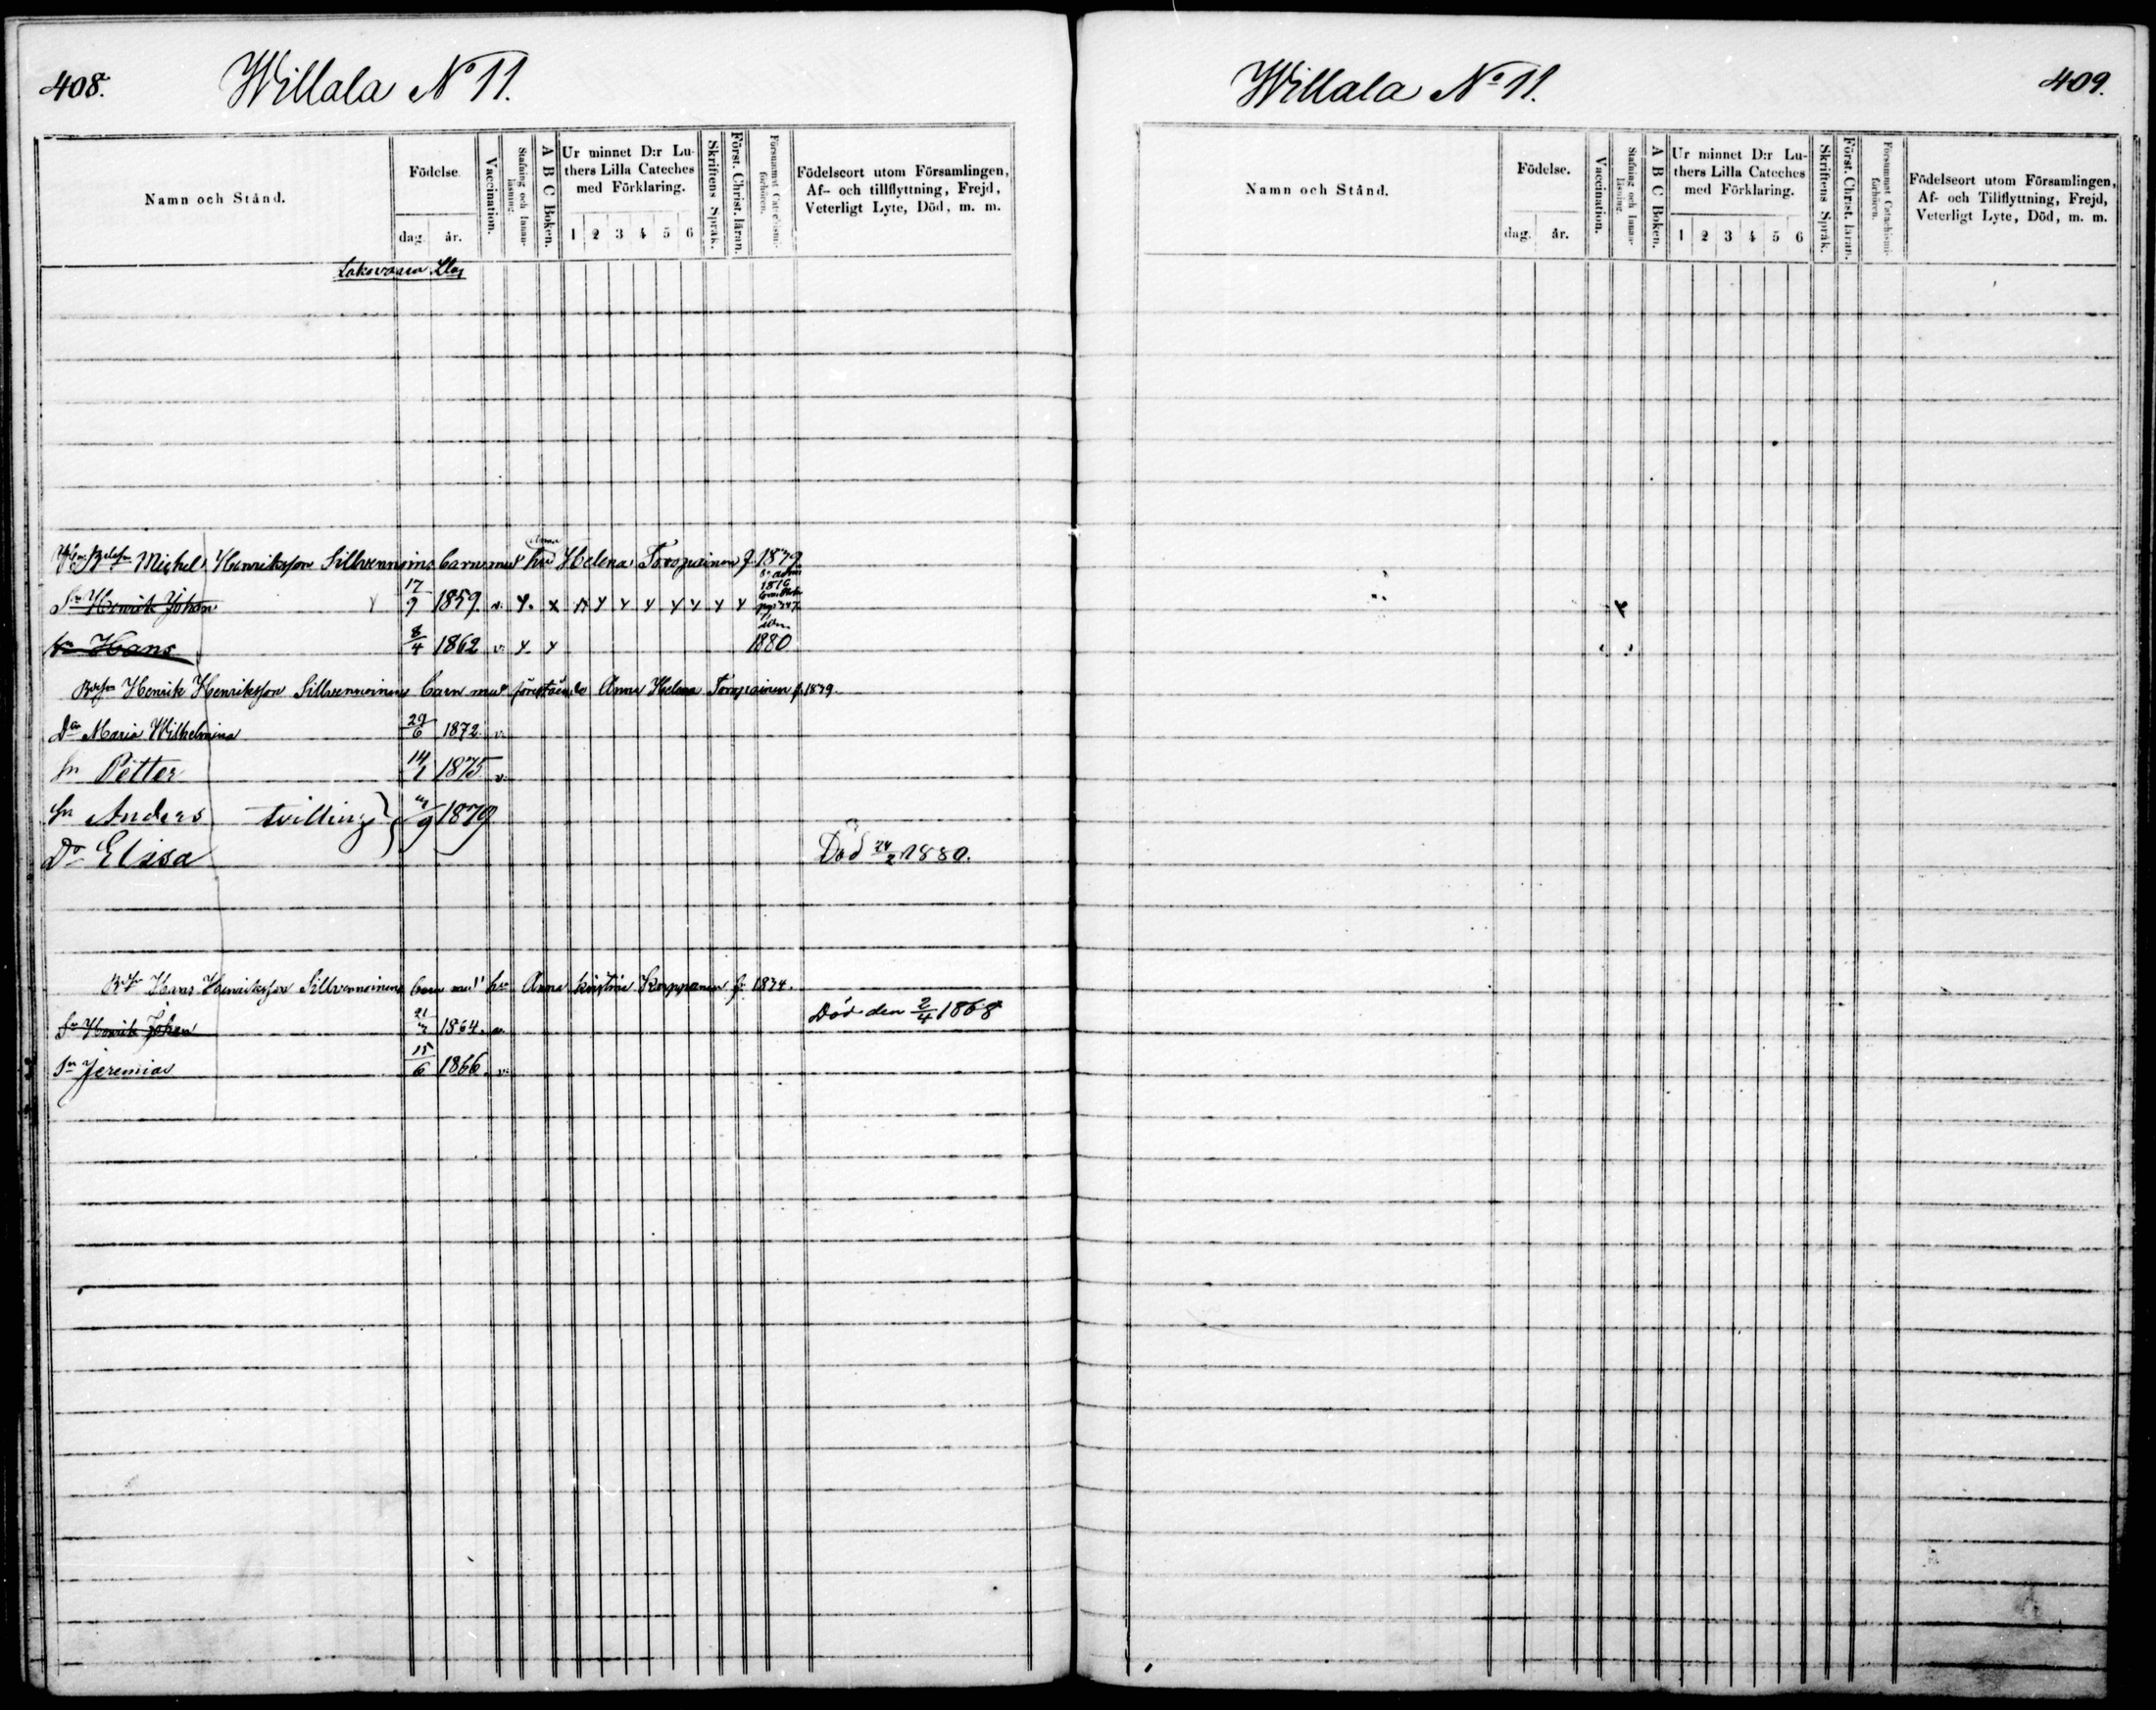 408.
Willala No 11.
Namn och Stånd.
Födelse.
dag. år.
Vaccination.
Stafning och Innan-läsning.
A B C Boken.
Ur minnet D:r Lu-
thers Lilla Cateches
med Förklaring.
1 2 3 4 5 6
Skriftens Språk.
Först. Christ. läran.
Försummat Catechismi-förhören.
Födelseort utom Församlingen,
Af- och tillflyttning, Frejd,
Veterligt Lyte, Död, m. m.
Michel Henriksson Sillvennoins barn med hu Anna Helena Toropainen f. 1879.
Sn Henrik Johan 17/9 1859. v.
Sn Hans 8/4 1862 v. 1880
Henrik Henriksson Sillvennoinens barn med Anna Helena Toropainen f. 1879.
Dr Maria Wilhelmina 29/6 1872. v.
Sn Petter 14/1 1875 v.
Sn Anders tvilling /9 1879
Dr Elisa Död 24/2 1880.
Hans Henriksson Sillvennoinens barn med hu Anna Kristina Karppanen f. 1874.
Sn Henrik Johan 21/ 1864. Död den 2/4 1868
Sn Jeremias 15/6 1866. v.
Willala No 11.
409.
Namn och Stånd.
Födelse.
dag. år.
Vaccination.
Stafning och Innan-läsning.
A B C Boken.
Ur minnet D:r Lu-
thers Lilla Cateches
med Förklaring.
1 2 3 4 5 6
Skriftens Språk.
Först. Christ. läran.
Försummat Catechismi-förhören.
Födelseort utom Församlingen,
Af- och Tillflyttning, Frejd,
Veterligt Lyte, Död, m. m.